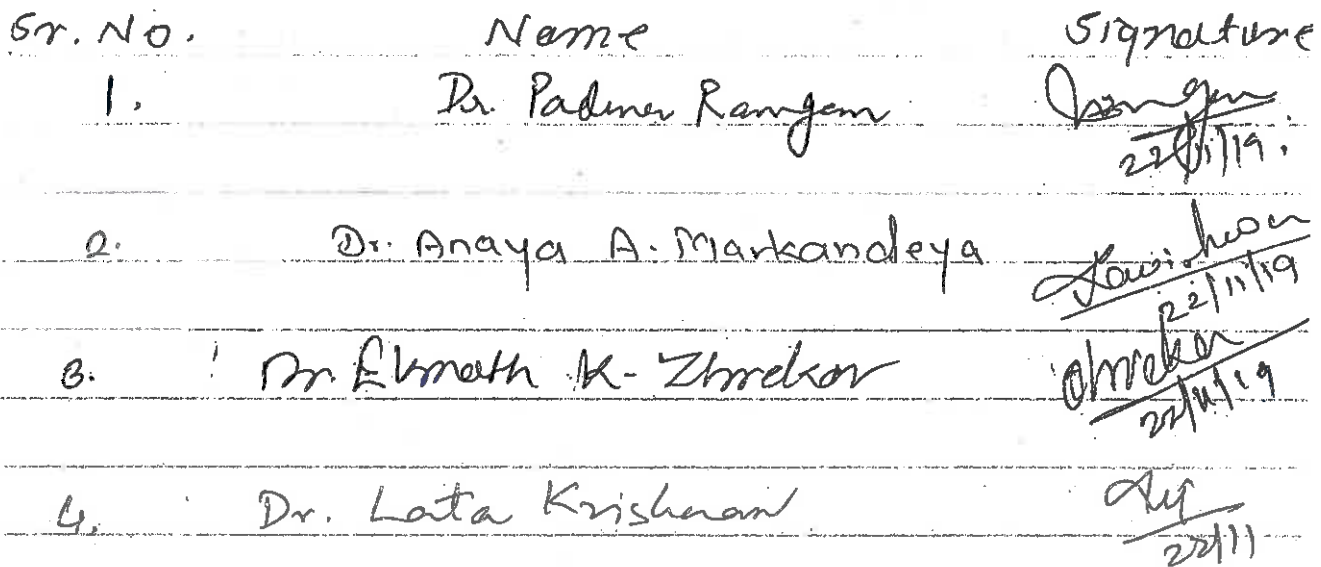 Sr. No. Name Signature
1. Dr. Padma Ramgam
22/11/19.
2. Dr. Anaya A. Markandeya
22/11/19
3. Dr. Eknath K- Zhrekar
22/11/19
4. Dr. Lata Krishnan
22/11